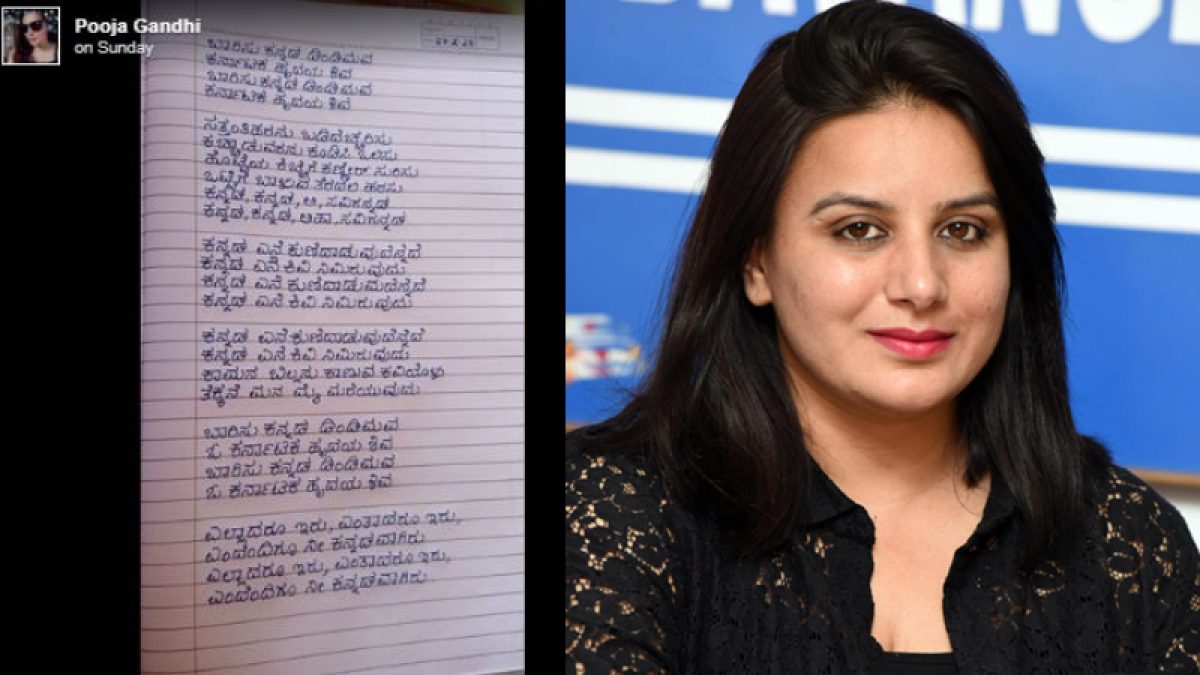 Pooja Gandhi
on Sunday
ಬಾರಿಸು ಕನ್ನಡ ಡಿಂಡಿಮವ
ಕರ್ನಾಟಕ ಹೃದಯ ಶಿವ
ಬಾರಿಸು ಕನ್ನಡ ಡಿಂಡಿಮವ
ಕರ್ನಾಟಕ ಹೃದಯ ಶಿವ
ಸತ್ತಂತಿಹರನು ಬಡಿದೆಚ್ಚರಿಸು
ಕಚ್ಚಾಡುವರನು ಕೂಡಿಸಿ ಒಲಿಸು
ಹೊಟ್ಟೆಯ ಕಿಚ್ಚಿಗೆ ಕಣ್ಣೀರ್ ಸುರಿಸು
ಒಟ್ಟಿಗೆ ಬಾಳುವ ತೆರದಲಿ ಹರಸು
ಕನ್ನಡ, ಕನ್ನಡ, ಆ, ಸವಿಗನ್ನಡ
ಕನ್ನಡ, ಕನ್ನಡ, ಆಹಾ, ಸವಿಗನ್ನಡ
ಕನ್ನಡ ಎನೆ ಕುಣಿದಾಡುವುದೆನ್ನೆದೆ
ಕನ್ನಡ ಎನೆ ಕಿವಿ ನಿಮಿರುವುದು
ಕನ್ನಡ ಎನೆ ಕುಣಿದಾಡುವುದೆನ್ನೆದೆ
ಕನ್ನಡ ಎನೆ ಕಿವಿ ನಿಮಿರುವುದು
ಕನ್ನಡ ಎನೆ ಕುಣಿದಾಡುವುದೆನ್ನೆದೆ
ಕನ್ನಡ ಎನೆ ಕಿವಿ ನಿಮಿರುವುದು
ಕಾಮನ ಬಿಲ್ಲನು ಕಾಣುವ ಕವಿಯೊಳು
ತೆಕ್ಕನೆ ಮನ ಮೈ ಮರೆಯುವುದು
ಬಾರಿಸು ಕನ್ನಡ ಡಿಂಡಿಮವ
ಓ ಕರ್ನಾಟಕ ಹೃದಯ ಶಿವ
ಬಾರಿಸು ಕನ್ನಡ ಡಿಂಡಿಮವ
ಓ ಕರ್ನಾಟಕ ಹೃದಯ ಶಿವ
ಎಲ್ಲಾದರೂ ಇರು, ಎಂತಾದರೂ ಇರು,
ಎಂದೆಂದಿಗೂ ನೀ ಕನ್ನಡವಾಗಿರು
ಎಲ್ಲಾದರೂ ಇರು, ಎಂತಾದರೂ ಇರು,
ಎಂದೆಂದಿಗೂ ನೀ ಕನ್ನಡವಾಗಿರು